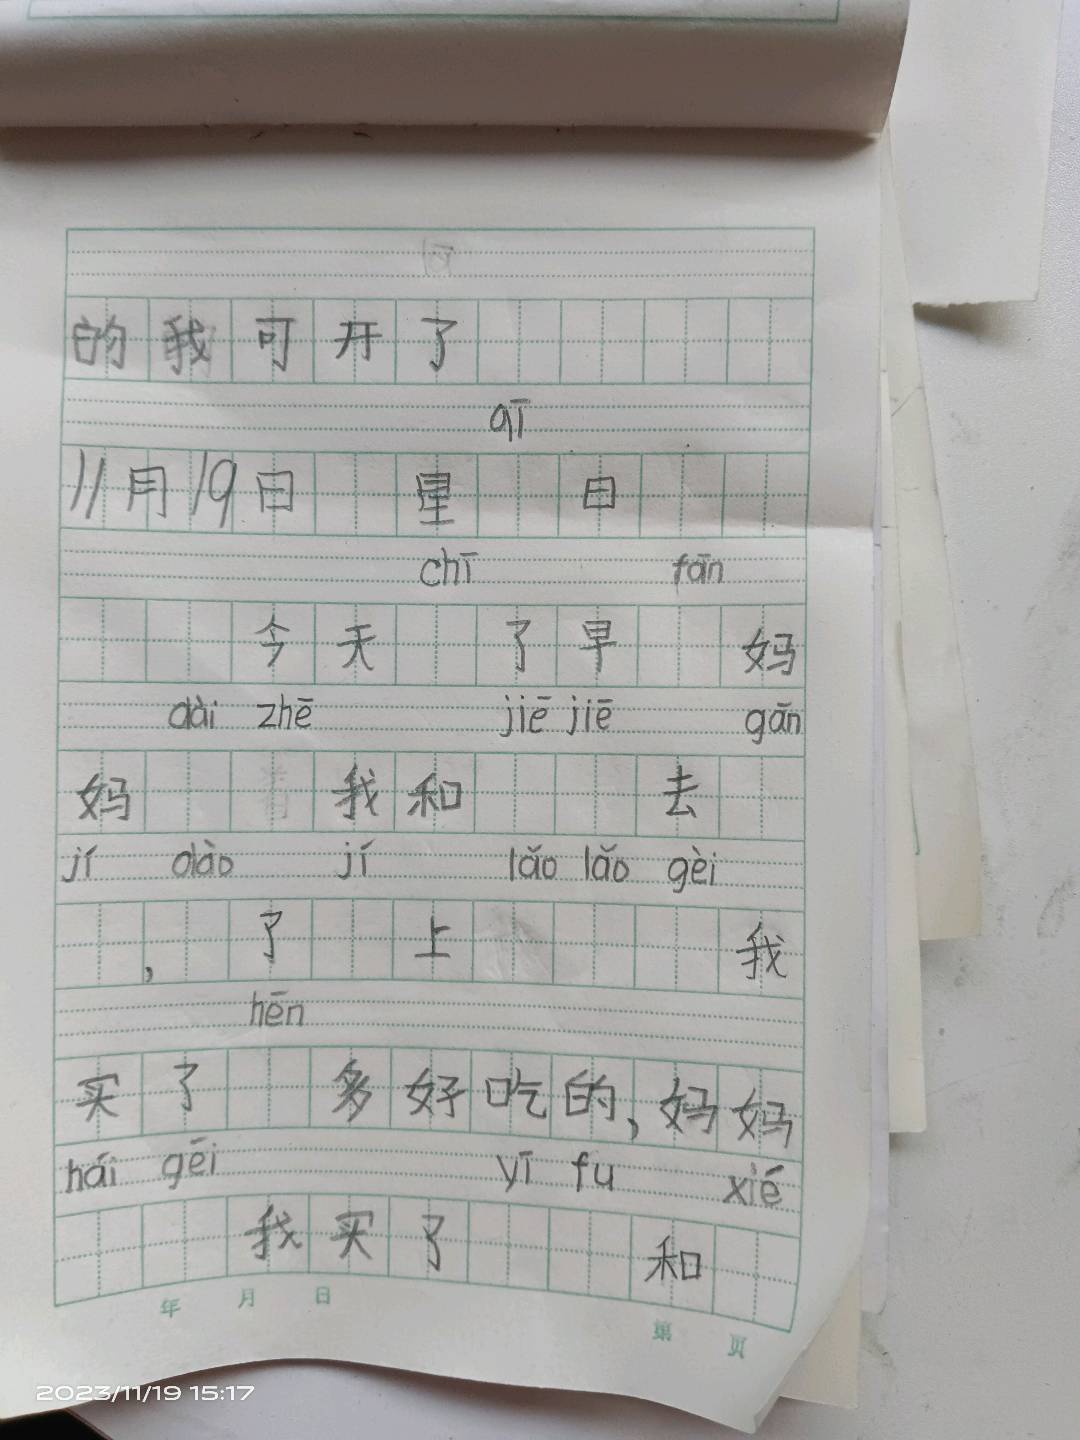 的我可开了
qī
11月19日 里 日
chī fān
今天 了早 妈
dài zhē jiē jiē gān
妈 我和 去
jí dào jí lǎo lǎo gèi
, 了 上 我
hēn
买了 多好吃的,妈妈
hái gēi yī fu xié
我买了 和
年 月 日 第 页
2023/11/19 15:17